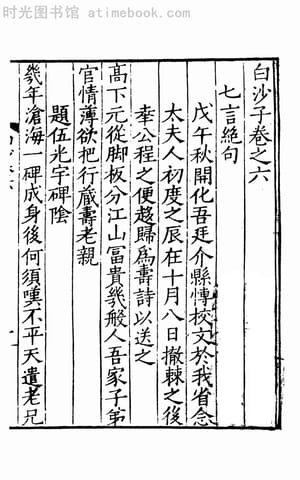 时光图书馆 atimebook.com
白沙子卷之六
七言絶句
戊午秋開化吾廷介縣博校文於我省念
太夫人初度之辰在十月八日撤棘之後
幸公程之便趍歸爲壽詩以送之
高下元從脚板分江山冨貴幾般人吾家子弟
官情薄欲把行藏壽老親
題伍光宇碑陰
幾年滄海一碑成身後何須嘆不平天遣老兄